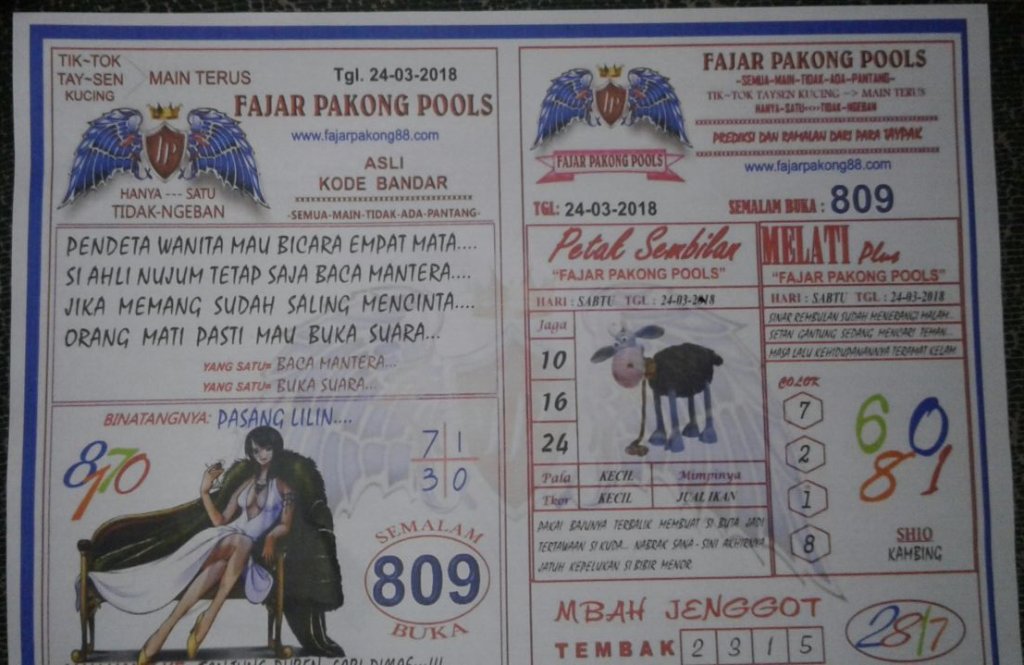 TIK~TOK
TAY~SEN
KUCING
MAIN TERUS
Tgl. 24-03-2018
FAJAR PAKONG POOLS
www.fajarpakong88.com
ASLI
KODE BANDAR
HANYA --- SATU
TIDAK-NGEBAN
-SEMUA-MAIN-TIDAK-ADA-PANTANG-
PENDETA WANITA MAU BICARA EMPAT MATA....
SI AHLI NUJUM TETAP SAJA BACA MANTERA....
JIKA MEMANG SUDAH SALING MENCINTA....
ORANG MATI PASTI MAU BUKA SUARA...
YANG SATU= BACA MANTERA...
YANG SATU= BUKA SUARA...
BINATANGNYA: PASANG LILIN....
8170
7 1
3 0
SEMALAM
809
BUKA
FAJAR PAKONG POOLS
-SEMUA-MAIN-TIDAK-ADA-PANTANG-
TIK~TOK TAYSEN KUCING --> MAIN TERUS
HANYA-SATU<--->TIDAK-NGEBAN
PREDIKSI DAN RAMALAN DARI PARA TAYPAK
FAJAR PAKONG POOLS
www.fajarpakong88.com
TGL: 24-03-2018
SEMALAM BUKA : 809
Petak Sembilan
"FAJAR PAKONG POOLS"
HARI : SABTU TGL : 24-03-2018
Jaga
10
16
24
Pala KECIL Mimpinya
Ekor KECIL JUAL IKAN
PAKAI BAJUNYA TERBALIK MEMBUAT SI BUTA JADI
TERTAWAAN SI KUDA... NABRAK SANA - SINI AKHIRNYA
JATUH KEPELUKAN SI BIBIR MENOR
MELATI Plus
"FAJAR PAKONG POOLS"
HARI : SABTU TGL : 24-03-2018
SINAR REMBULAN SUDAH MENERANGI MALAM...
SETAN GANTUNG SEDANG MENCARI TEMAN...
MASA LALU KEHIDUPANANNYA TERAMAT KELAM
COLOK
7
2
1
8
6 0
8 1
SHIO
KAMBING
MBAH JENGGOT
TEMBAK 2 3 1 5
2817